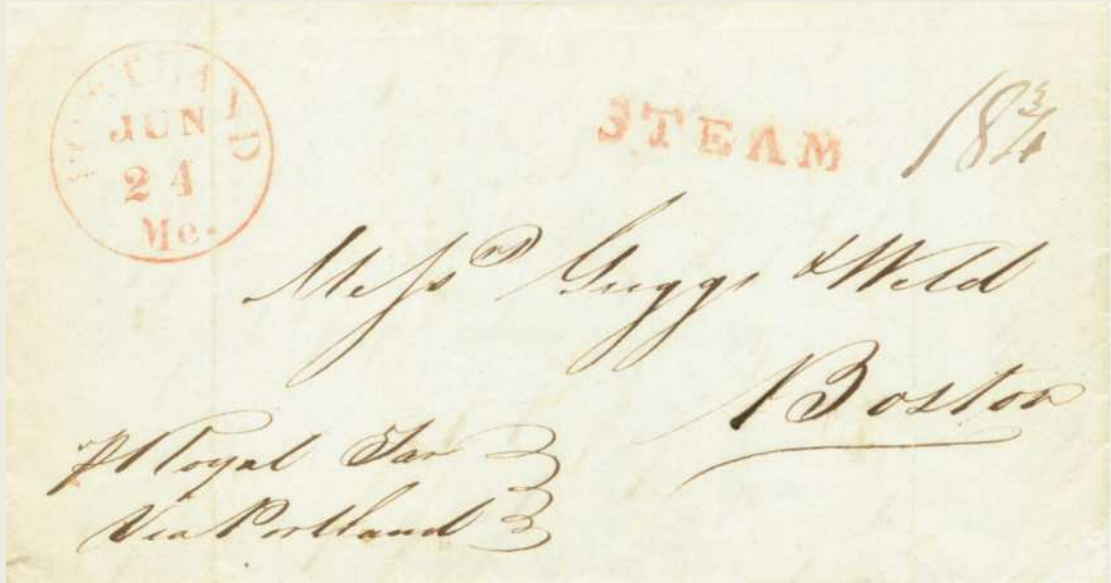 PORTLAND
JUN
24
Me.
STEAM
18¾
Messrs Griggs & Weld
Boston
p Royal Tar
Via Portland